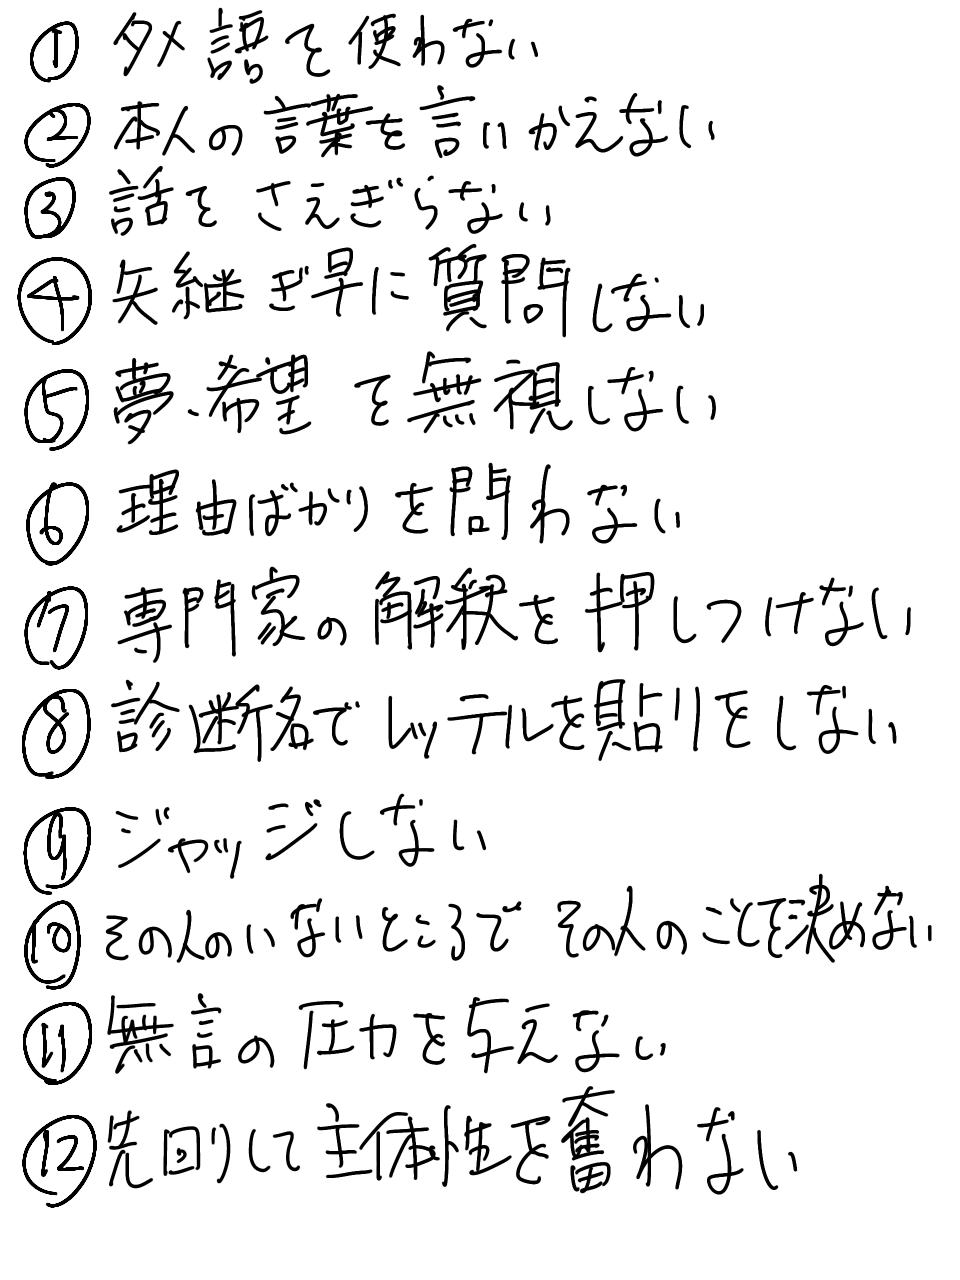 ① タメ語を使わない
② 本人の言葉を言いかえない
③ 話をさえぎらない
④ 矢継ぎ早に質問しない
⑤ 夢、希望を無視しない
⑥ 理由ばかりを問わない
⑦ 専門家の解釈を押しつけない
⑧ 診断名でレッテルを貼りをしない
⑨ ジャッジしない
⑩ その人のいないところでその人のことを決めない
⑪ 無言の圧力を与えない
⑫ 先回りして主体性を奪わない